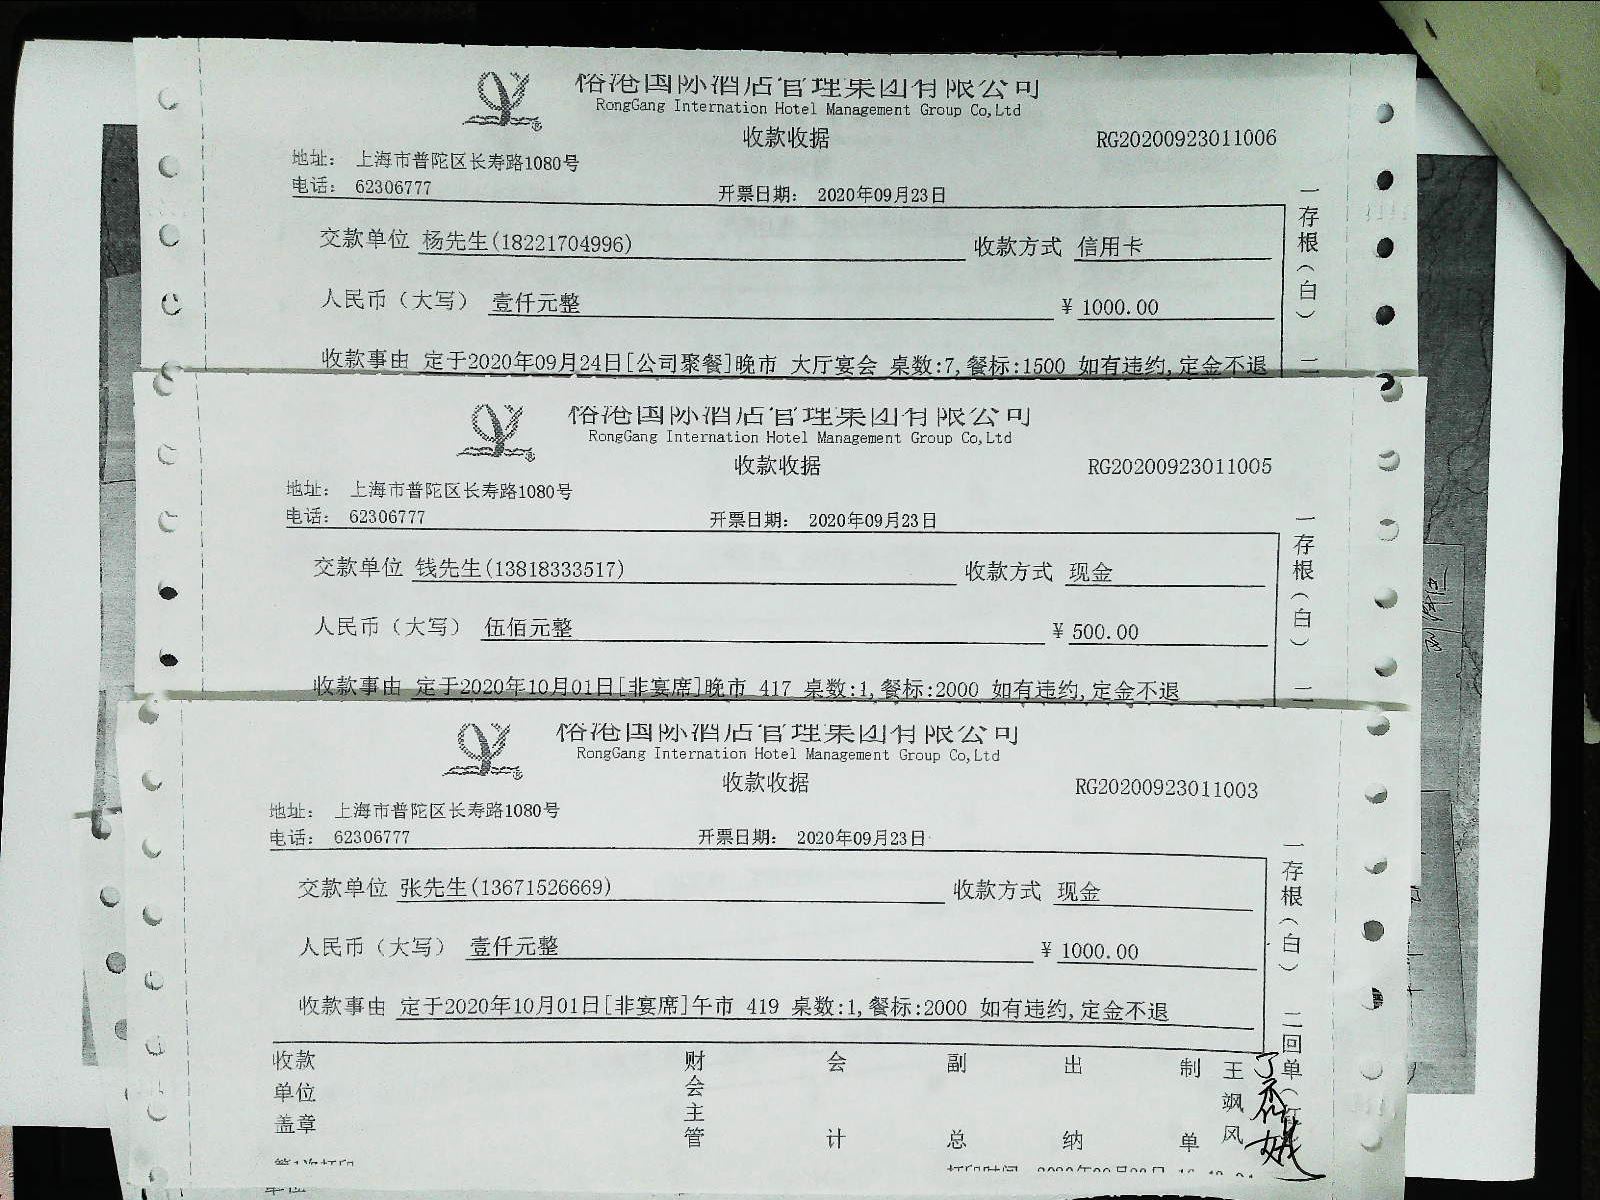 榕港国际酒店管理集团有限公司
RongGang Internation Hotel Management Group Co,Ltd
收款收据
RG20200923011006
地址： 上海市普陀区长寿路1080号
电话： 62306777 开票日期： 2020年09月23日
交款单位 杨先生(18221704996) 收款方式 信用卡
人民币（大写） 壹仟元整 ¥ 1000.00
收款事由 定于2020年09月24日[公司聚餐]晚市 大厅宴会 桌数:7,餐标:1500 如有违约,定金不退
一存根（白）二
榕港国际酒店管理集团有限公司
RongGang Internation Hotel Management Group Co,Ltd
收款收据
RG20200923011005
地址： 上海市普陀区长寿路1080号
电话： 62306777 开票日期： 2020年09月23日
交款单位 钱先生(13818333517) 收款方式 现金
人民币（大写） 伍佰元整 ¥ 500.00
收款事由 定于2020年10月01日[非宴席]晚市 417 桌数:1,餐标:2000 如有违约,定金不退
一存根（白）二
榕港国际酒店管理集团有限公司
RongGang Internation Hotel Management Group Co,Ltd
收款收据
RG20200923011003
地址： 上海市普陀区长寿路1080号
电话： 62306777 开票日期： 2020年09月23日
交款单位 张先生(13671526669) 收款方式 现金
人民币（大写） 壹仟元整 ¥ 1000.00
收款事由 定于2020年10月01日[非宴席]午市 419 桌数:1,餐标:2000 如有违约,定金不退
一存根（白）二回单（红
收款单位盖章 财会主管 会计 副总 出纳 制单 王飒风